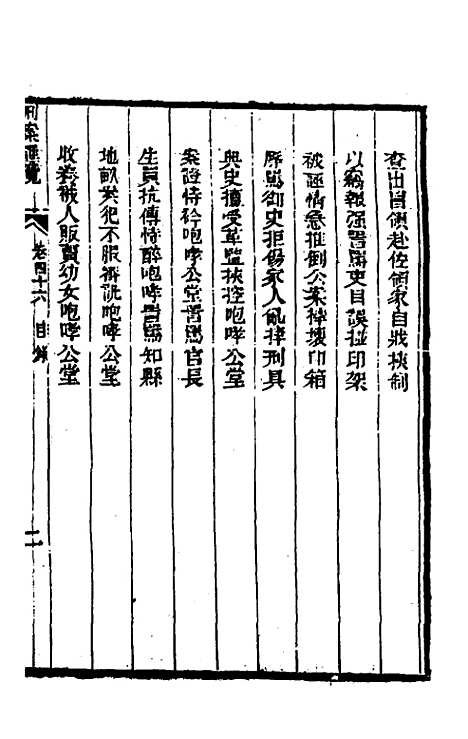 查出冒領赴佐領家自戕挾制
以竊報强詈罵吏目誤碰印架
被誣情急推倒公案掉壞印箱
辱罵御史拒傷家人亂摔刑具
典史擅受革監挾控咆哮公堂
案證恃矜咆哮公堂詈罵官長
生員抗傳恃醉咆哮詈罵知縣
地畝案犯不服審訊咆哮公堂
收養被人販賣幼女咆哮公堂
刑案匯覽 卷四十六 目錄 二